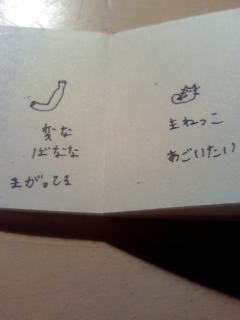 変な
ばなな
まがってる
まねっこ
あごいたい